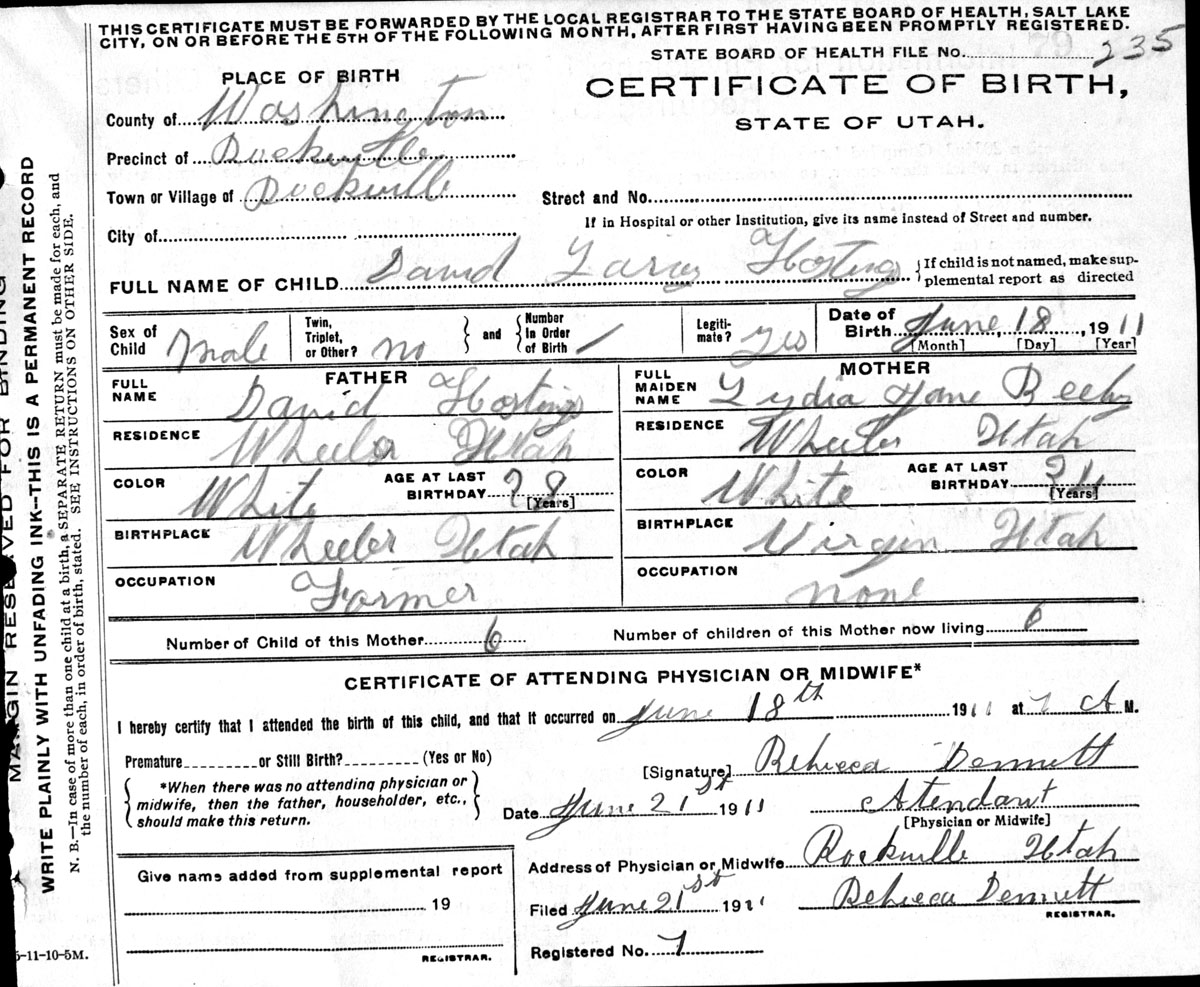 THIS CERTIFICATE MUST BE FORWARDED BY THE LOCAL REGISTRAR TO THE STATE BOARD OF HEALTH, SALT LAKE
CITY, ON OR BEFORE THE 5TH OF THE FOLLOWING MONTH, AFTER FIRST HAVING BEEN PROMPTLY REGISTERED.
STATE BOARD OF HEALTH FILE No. 235
PLACE OF BIRTH
CERTIFICATE OF BIRTH,
STATE OF UTAH.
County of Washington
Precinct of Rockville
Town or Village of Rockville
Street and No.
If in Hospital or other Institution, give its name instead of Street and number.
City of
FULL NAME OF CHILD David Hastings
{If child is not named, make sup-
plemental report as directed
Sex of Child Male
Twin, Triplet, or Other? no
and
Number In Order of Birth 1
Legiti-mate? Yes
Date of Birth June 18, 1911
[Month] [Day] [Year]
FATHER
FULL NAME David Hastings
RESIDENCE Wheeler Utah
COLOR White
AGE AT LAST BIRTHDAY 28
[Years]
BIRTHPLACE Wheeler Utah
OCCUPATION Farmer
MOTHER
FULL MAIDEN NAME Lydia Jane
RESIDENCE Wheeler Utah
COLOR White
AGE AT LAST BIRTHDAY
[Years]
BIRTHPLACE Virgin Utah
OCCUPATION none
Number of Child of this Mother 6
Number of children of this Mother now living 6
CERTIFICATE OF ATTENDING PHYSICIAN OR MIDWIFE*
I hereby certify that I attended the birth of this child, and that it occurred on June 18th 1911 at 7 A M.
Premature or Still Birth? (Yes or No)
[Signature] Rebecca Dennett
*When there was no attending physician or
midwife, then the father, householder, etc.,
should make this return.
Date June 21st 1911
Atendant
[Physician or Midwife]
Address of Physician or Midwife Rockville Utah
Give name added from supplemental report
19
REGISTRAR.
Filed June 21st 1911
Rebecca Dennett
REGISTRAR.
Registered No. 7
5-11-10-5M.
MARGIN RESERVED FOR BINDING
WRITE PLAINLY WITH UNFADING INK—THIS IS A PERMANENT RECORD
N. B.—In case of more than one child at a birth, a SEPARATE RETURN must be made for each, and
the number of each, in order of birth, stated. SEE INSTRUCTIONS ON OTHER SIDE.